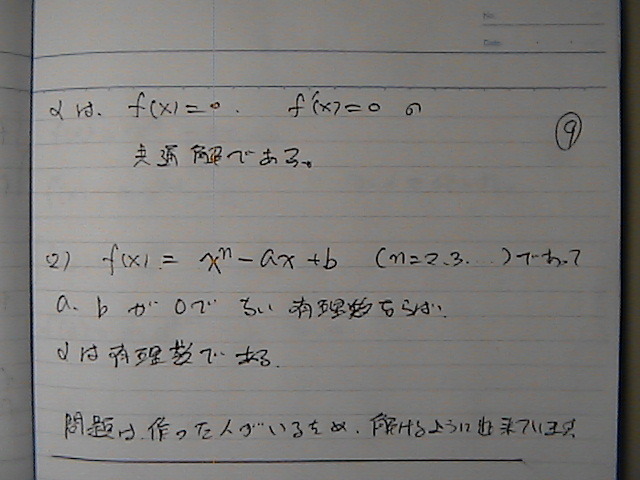 No.
Date
αは、f(x)=0. f'(x)=0 の
⑨
共通解である。
(2) f(x) = xⁿ-ax+b (n=2,3...)であって
a. b が 0で ない 有理数ならば、
αは有理数である.
問題は、作った人がいるため、解けるように出来ています